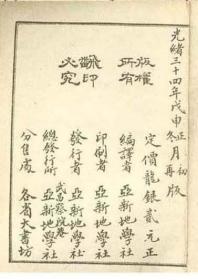 光緒三十四年戊申正月初版
冬月再版
定價龍銀貳元正
版權所有
翻印必究
編譯者 亞新地學社
印刷者 亞新地學社
發行者 亞新地學社
武昌察院巷
總發行所 亞新地學社
分售處 各省大書坊